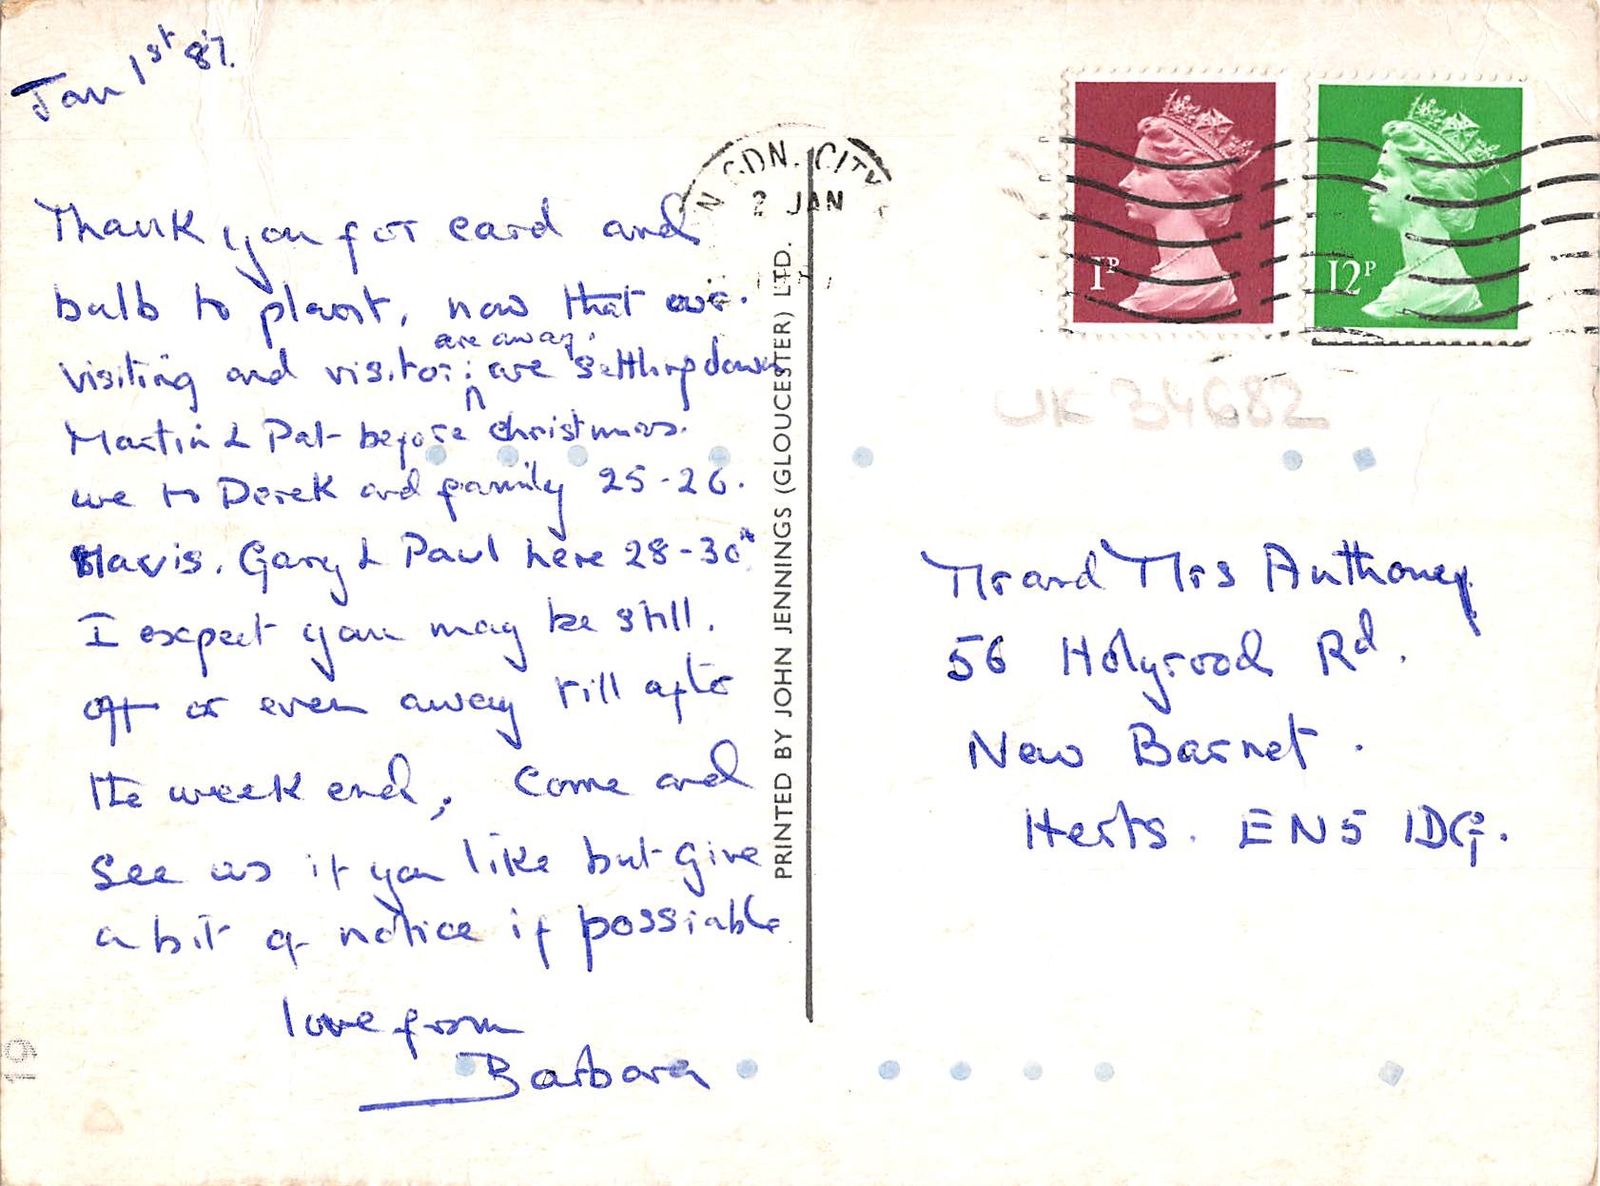 Jan 1st 87.
Thank you for card and
bulb to plant, now that our
visiting and visitors are away, are settling down
Martin & Pat before Christmas.
we to Derek and family 25-26.
Mavis. Gary & Paul here 28-30th
I expect you may be still.
off or even away till after
the week end, Come and
see us if you like but give
a bit of notice if possiable
love from
Barbara
PRINTED BY JOHN JENNINGS (GLOUCESTER) LTD.
GDN. CITY
2 JAN
1P
12P
UK 34682
Mr and Mrs Anthoney
56 Holyrood Rd.
New Barnet.
Herts. EN5 1DG.
19